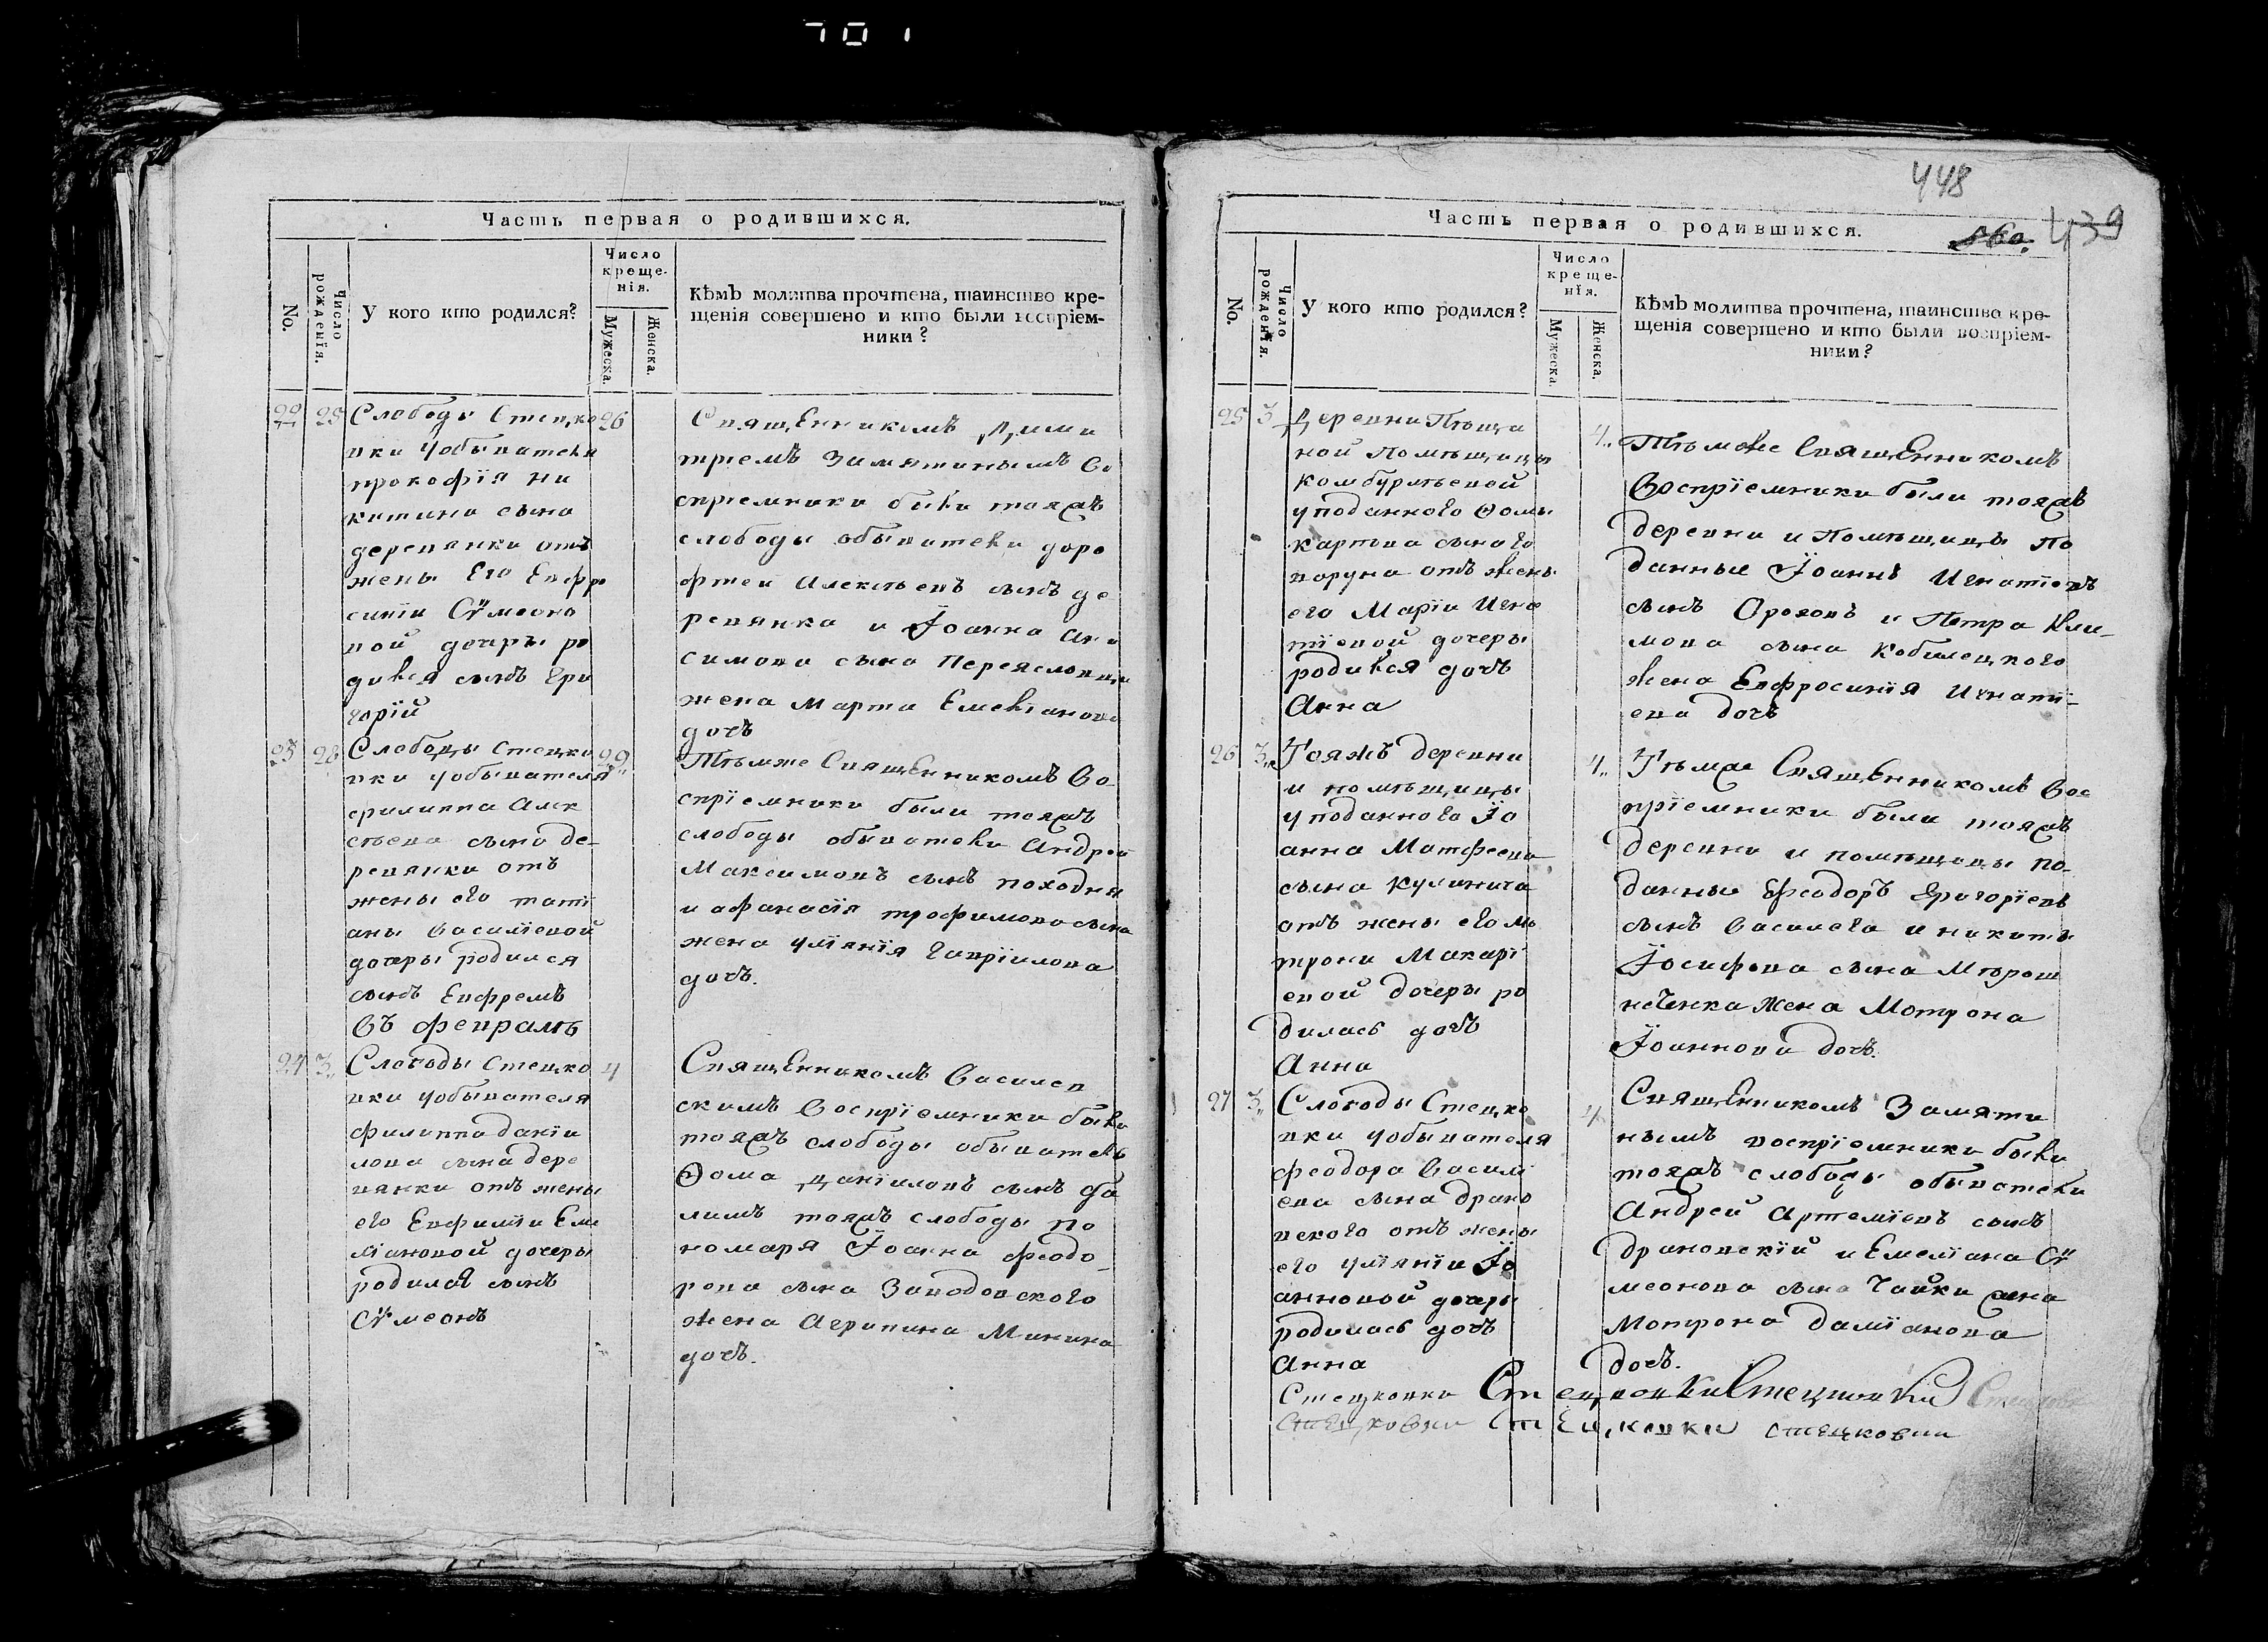 701
Часть первая о родившихся.
No.
Число рожденія.
У кого кто родился?
Число
креще-
нія.
Мужеска.
Женска.
Кѣмъ молитва прочтена, таинство кре-
щенія совершено и кто были воспріем-
ники?
22 25 Слободы Стецко 26
вки уобывателя
прокофія ни
китина сына
деревянки отъ
жены его Евфро
синіи Сѵмеоно
вой дочеры ро
дился сынъ Гри
горій
Священникомъ Дими
тріемъ Замятинымъ во
спріемники были тояжъ
слободы обыватели доро
фтеи Алексѣевъ сынъ де
ревянка и Іоанна Ани
симова сына Переяслов
жена Марта Емелїанова
дочъ
23 28 Слободы Стецко 29
вки уобывателя
филиппа Алек
сѣева сына де-
ревянки отъ
жены его тати
аны Василїевой
дочеры родился
сынъ Евфремъ
Тѣмже Священникомъ во-
спрїемники были тояжъ
слободы обыватели Андрей
Максимовъ сынъ походня
и афанасїя трофимова сына
жена улїянїя Гаврїилова
дочъ.
Въ февралѣ
24 3 Слободы Стецко 4
вки уобывателя
филиппа данїи
лова сына дере
вянки отъ жены
его Евфимїи Еме
лїановой дочеры
родился сынъ
Сѵмеонъ
Священникомъ Васили
скимъ Воспрїемники были
тояжъ слободы обыватель
Ѳома Данїиловъ сынъ
тояжъ слободы по
номаря Іоанна феодо
рова сына Заводовского
жена Агрипина Минина
дочъ.
448
860. 439
Часть первая о родившихся.
No.
Число рожденія.
У кого кто родился?
Число
креще-
нія.
Мужеска.
Женска.
Кѣмъ молитва прочтена, таинство кре-
щенія совершено и кто были воспріем-
ники?
25 3 Деревни Пѣща 4
ной Помѣщицы
Комбурлѣевой
у подданного Ѳомы
карпова сына Го
воруна отъ жены
его Марїи Игна
тїевой дочеры
родился дочъ
Анна
Тѣмже Священникомъ
Воспрїемники были тояжъ
деревни и Помѣщицы по
данные Іоаннъ Игнатїевъ
сынъ Ороховъ и Петра Кли-
мова сына Кобилецкого
жена Евфросинїя Игнатї-
ева дочъ
26 3 Тояжъ деревни 4
и помѣщицы
у подданного Іо
анна Матфеева
сына Кулинича
отъ жены его Мо
троны Макарї
евой дочеры ро
дилась дочъ
Анна
Тѣмже Священникомъ Вос
прїемники были тояжъ
деревни и помѣщицы по-
данные Ѳеодоръ Григорїевъ
сынъ Василега и никиты
Іосифова сына Мѣрош
ниченка Жена Мотрона
Іоаннова дочъ.
27 3 Слободы Стецко 4
вки уобывателя
феодора Василї
ева сына драно
вского отъ жены
его улїянїи Іо
анновой дочеры
родилась дочъ
Анна
Священникомъ Замяти
нымъ воспрїемники были
тояжъ слободы обыватели
Андрей Артемїевъ сынъ
Драновскїй и Емелїана Сѵ
меонова сына Чайки жена
Мотрона Дамїанова
дочъ.
Стецковки Стецковки Стецковки
Стецковки Стецковки Стецковки